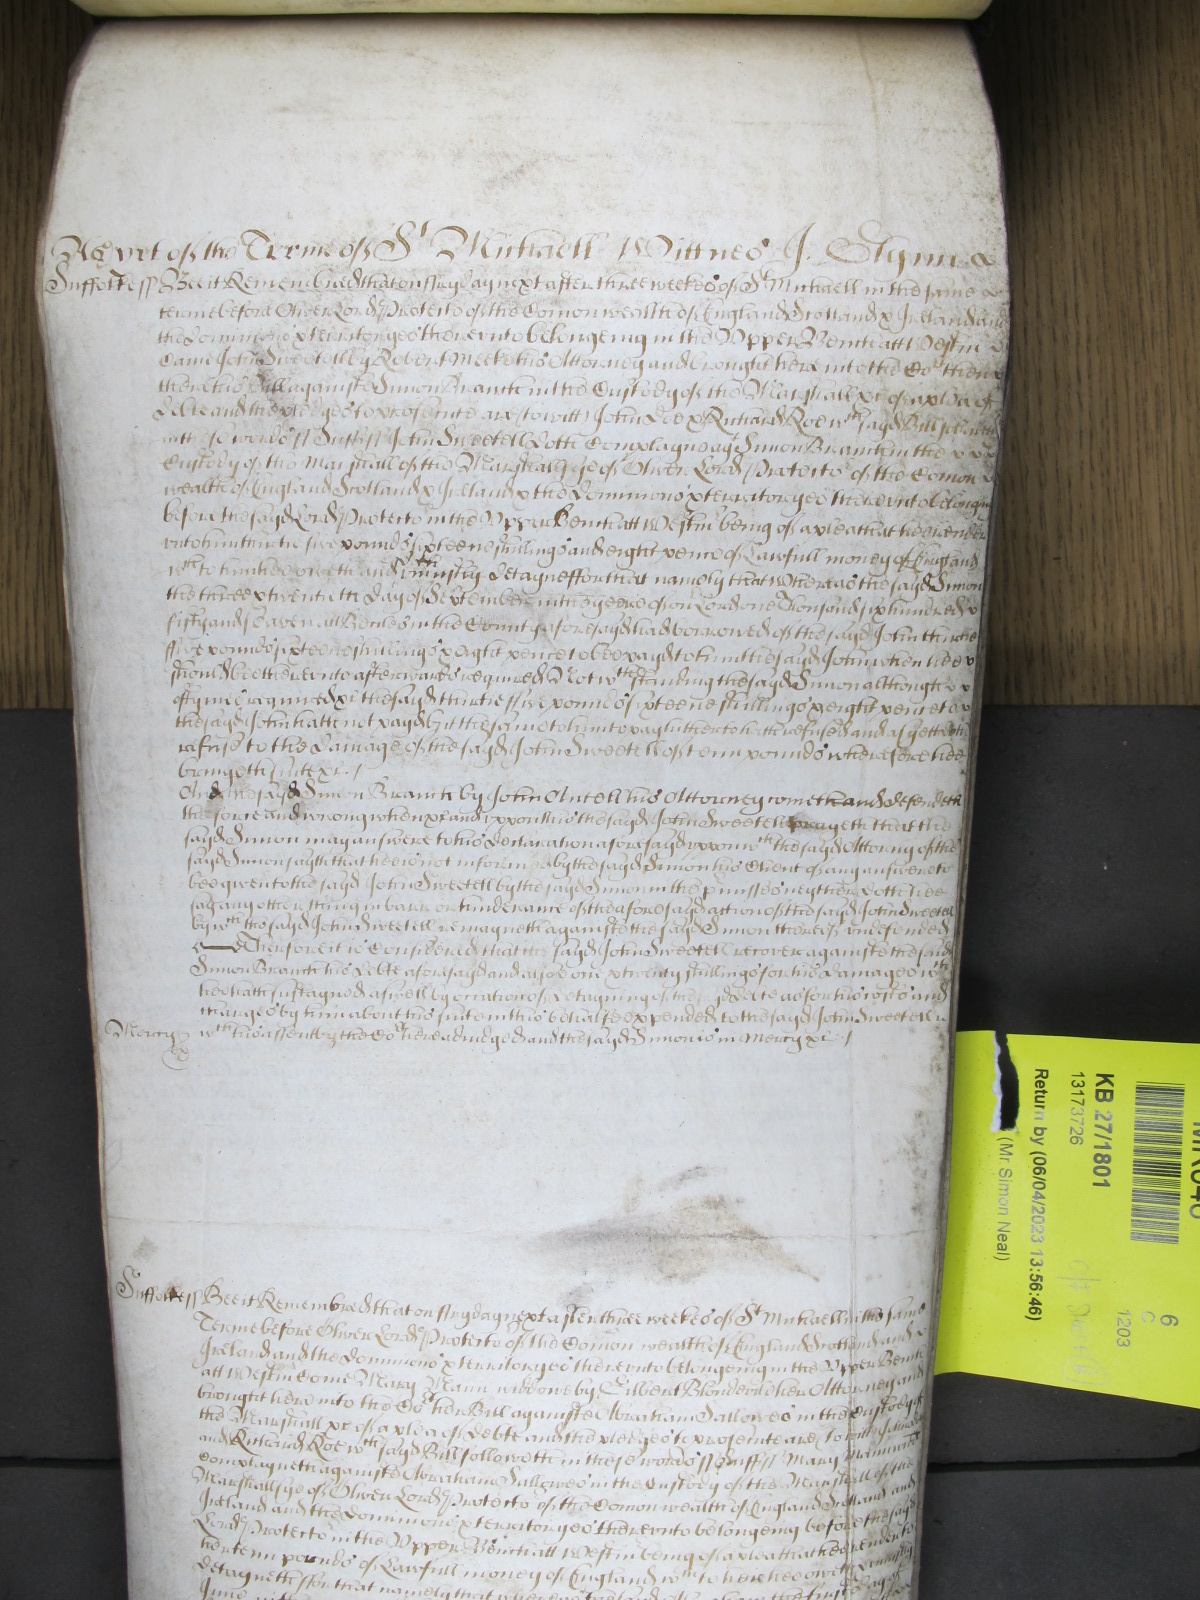 As yet of the Terme of St Michaell Wittnes J. Glynn &
Suffolk ss Bee it Remembred that on ffryday next after three weekes of St Michaell in the same
terme before Oliver Lord Protector of the Comon wealth of England Scotland & Ireland and
the dominions & territoryes therevnto belongeing in the Vpper Bench att Westm
Came John Sweetell by Robert Meeke his Attorney and brought here into the Cort then
there his Bill againste Simon Branch in the Custody of the Marshall &c of a plea of
debte and the pledges to prosecute are to witt John Doe & Richard Roe wch sayd Bill followeth
in these words ss Suff ss John Sweetell doth Complayne agt Simon Branch in the
Custody of the Marshall of the Marshallsye of Oliver Lord Protector of the Comon
wealth of England Scotland & Ireland & the dominions & territoryes therevnto belonging
before the sayd Lord Protector in the Vpper Bench att Westm being of a plea that hee render
vnto him thirtie five pounds sixteene shillings and eight pence of Lawfull money of England
wch to him hee oweth and vniustly detayneth for that namely that Whereas the sayd Simon
the three & twentith day of September in the yeere of or Lord one Thousand six hundred
fifty and seaven att Beccles in the County aforesayd had borrowed of the sayd John thirtie
five pounds sixteene shillings & eight pence to bee payd to him the sayd John when hee
should bee therevnto afterwards required Notwthstanding the sayd Simon although
often required &c the sayd thirtie five pounds sixteene shillings & eight pence to
the sayd John hath not payd but the same to him to pay hitherto hath refused and as yett doth
refuse to the damage of the sayd John Sweetell of tenn pounds wherefore hee
bringeth suite &c /
And the sayd Simon Branch by John Antell his Attorney cometh and defendeth
the force and wrong when &c and vpon this the sayd John Sweetell prayeth that the
sayd Simon may answere to his declaration aforesayd vpon wch the sayd Attorny of the
sayd Simon sayth that hee is not informed by the sayd Simon his Client of any answere to
bee given to the sayd John Sweetell by the sayd Simon in the pmisses neyther doth hee
say any other thing in barr or hinderance of the aforesayd action of the sayd John Sweetell
by wch the sayd John Sweetell remayneth againste the sayd Simon thereof vndefended
Therefore it is Considered that the sayd John Sweetell recover againste the sayd
Simon Branch his debte aforesayd and alsoe one & twenty shillings for his damages wch
hee hath sustayned aswell by occation of detayning of the sayd debte as for his costs and
charges by him about his suite in this behalfe expended to the sayd John Sweetell
Mercy wth his assent by the Cort here adiudged and the sayd Simon is in Mercy &c /
Suffolk ss Bee it Remembred that on ffryday next after three weekes of St Michaell in this same
Terme before Oliver Lord Protector of the Comon wealth of England Scotland and
Ireland and the dominions & territoryes therevnto belongeing in the Vpper Bench
att Westm Come Mary Mann widdowe by Gilbert Blondevile her Attorney and
brought here into the Cort her Bill againste Abraham Sallowes in the Custody of
the Marshall &c of a plea of debte and the pledges to prosecute are to witt John Doe
and Richard Roe wch sayd Bill followeth in these words ss Suff ss Mary Mann
complayneth againste Abraham Sallowes in the Custody of the Marshall of the
Marshallsye of Oliver Lord Protector of the Comon wealth of England Scotland and
Ireland and the dominions & territoryes therevnto belongeing before the sayd
Lord Protector in the Vpper Bench att Westm being of a plea that hee render to
her tenn pounds of Lawfull money of England wch to her hee oweth & vniustly
detayneth for that namely that whereas
June
KB 27/1801
13173726
Return by (06/04/2023 13:56:46)
(Mr Simon Neal)
6
C
1203